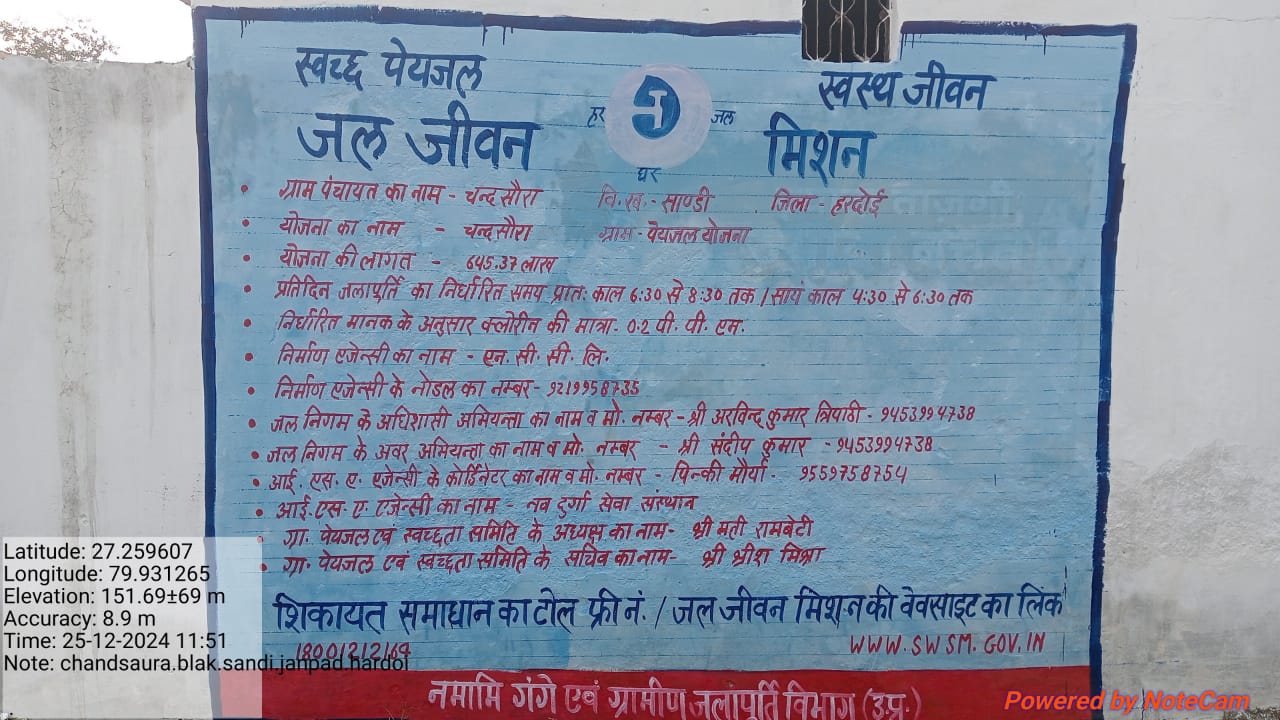 स्वच्छ पेयजल
स्वस्थ जीवन
हर
जल
घर
जल जीवन
मिशन
• ग्राम पंचायत का नाम - चन्द्रसौरा वि.ख.- साण्डी जिला - हरदोई
• योजना का नाम - चन्द्रसौरा ग्राम - पेयजल योजना
• योजना की लागत - 645.37 लाख
• प्रतिदिन जलापूर्ति का निर्धारित समय प्रातः काल 6:30 से 8:30 तक / सायं काल 4:30 से 6:30 तक
• निर्धारित मानक के अनुसार क्लोरीन की मात्रा- 0.2 पी. पी. एम.
• निर्माण एजेन्सी का नाम - एन. सी. सी. लि.
• निर्माण एजेन्सी के नोडल का नम्बर- 9219958735
• जल निगम के अधिशासी अभियन्ता का नाम व मो. नम्बर - श्री अरविन्द कुमार त्रिपाठी - 9453994738
• जल निगम के अवर अभियन्ता का नाम व मो. नम्बर - श्री संदीप कुमार - 9453994738
• आई. एस. ए. एजेन्सी के कोर्डिनेटर का नाम व मो. नम्बर - पिन्की मौर्या- 9559758754
• आई.एस.ए. एजेन्सी का नाम - नव दुर्गा सेवा संस्थान
• ग्रा. पेयजल एवं स्वच्छता समिति के अध्यक्ष का नाम- श्री मती रामबेटी
• ग्रा. पेयजल एवं स्वच्छता समिति के सचिव का नाम- श्री श्रीश मिश्रा
शिकायत समाधान का टोल फ्री नं. / जल जीवन मिशन की वेवसाइट का लिंक
18001212164 WWW.SWSM.GOV.IN
नमामि गंगे एवं ग्रामीण जलापूर्ति विभाग (उ.प्र.)
Latitude: 27.259607
Longitude: 79.931265
Elevation: 151.69±69 m
Accuracy: 8.9 m
Time: 25-12-2024 11:51
Note: chandsaura.blak.sandi.janpad.hardoi
Powered by NoteCam